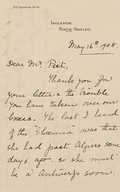 INGLESIDE,
NORTH SHIELDS.
May 16th 1908.
Dear Mr. Peet,
Thank you for
your letter & the trouble
you have taken over our
boxes. The last I heard
of the was that
she had past Algiers some
days ago so she must
be in Antwerp soon.